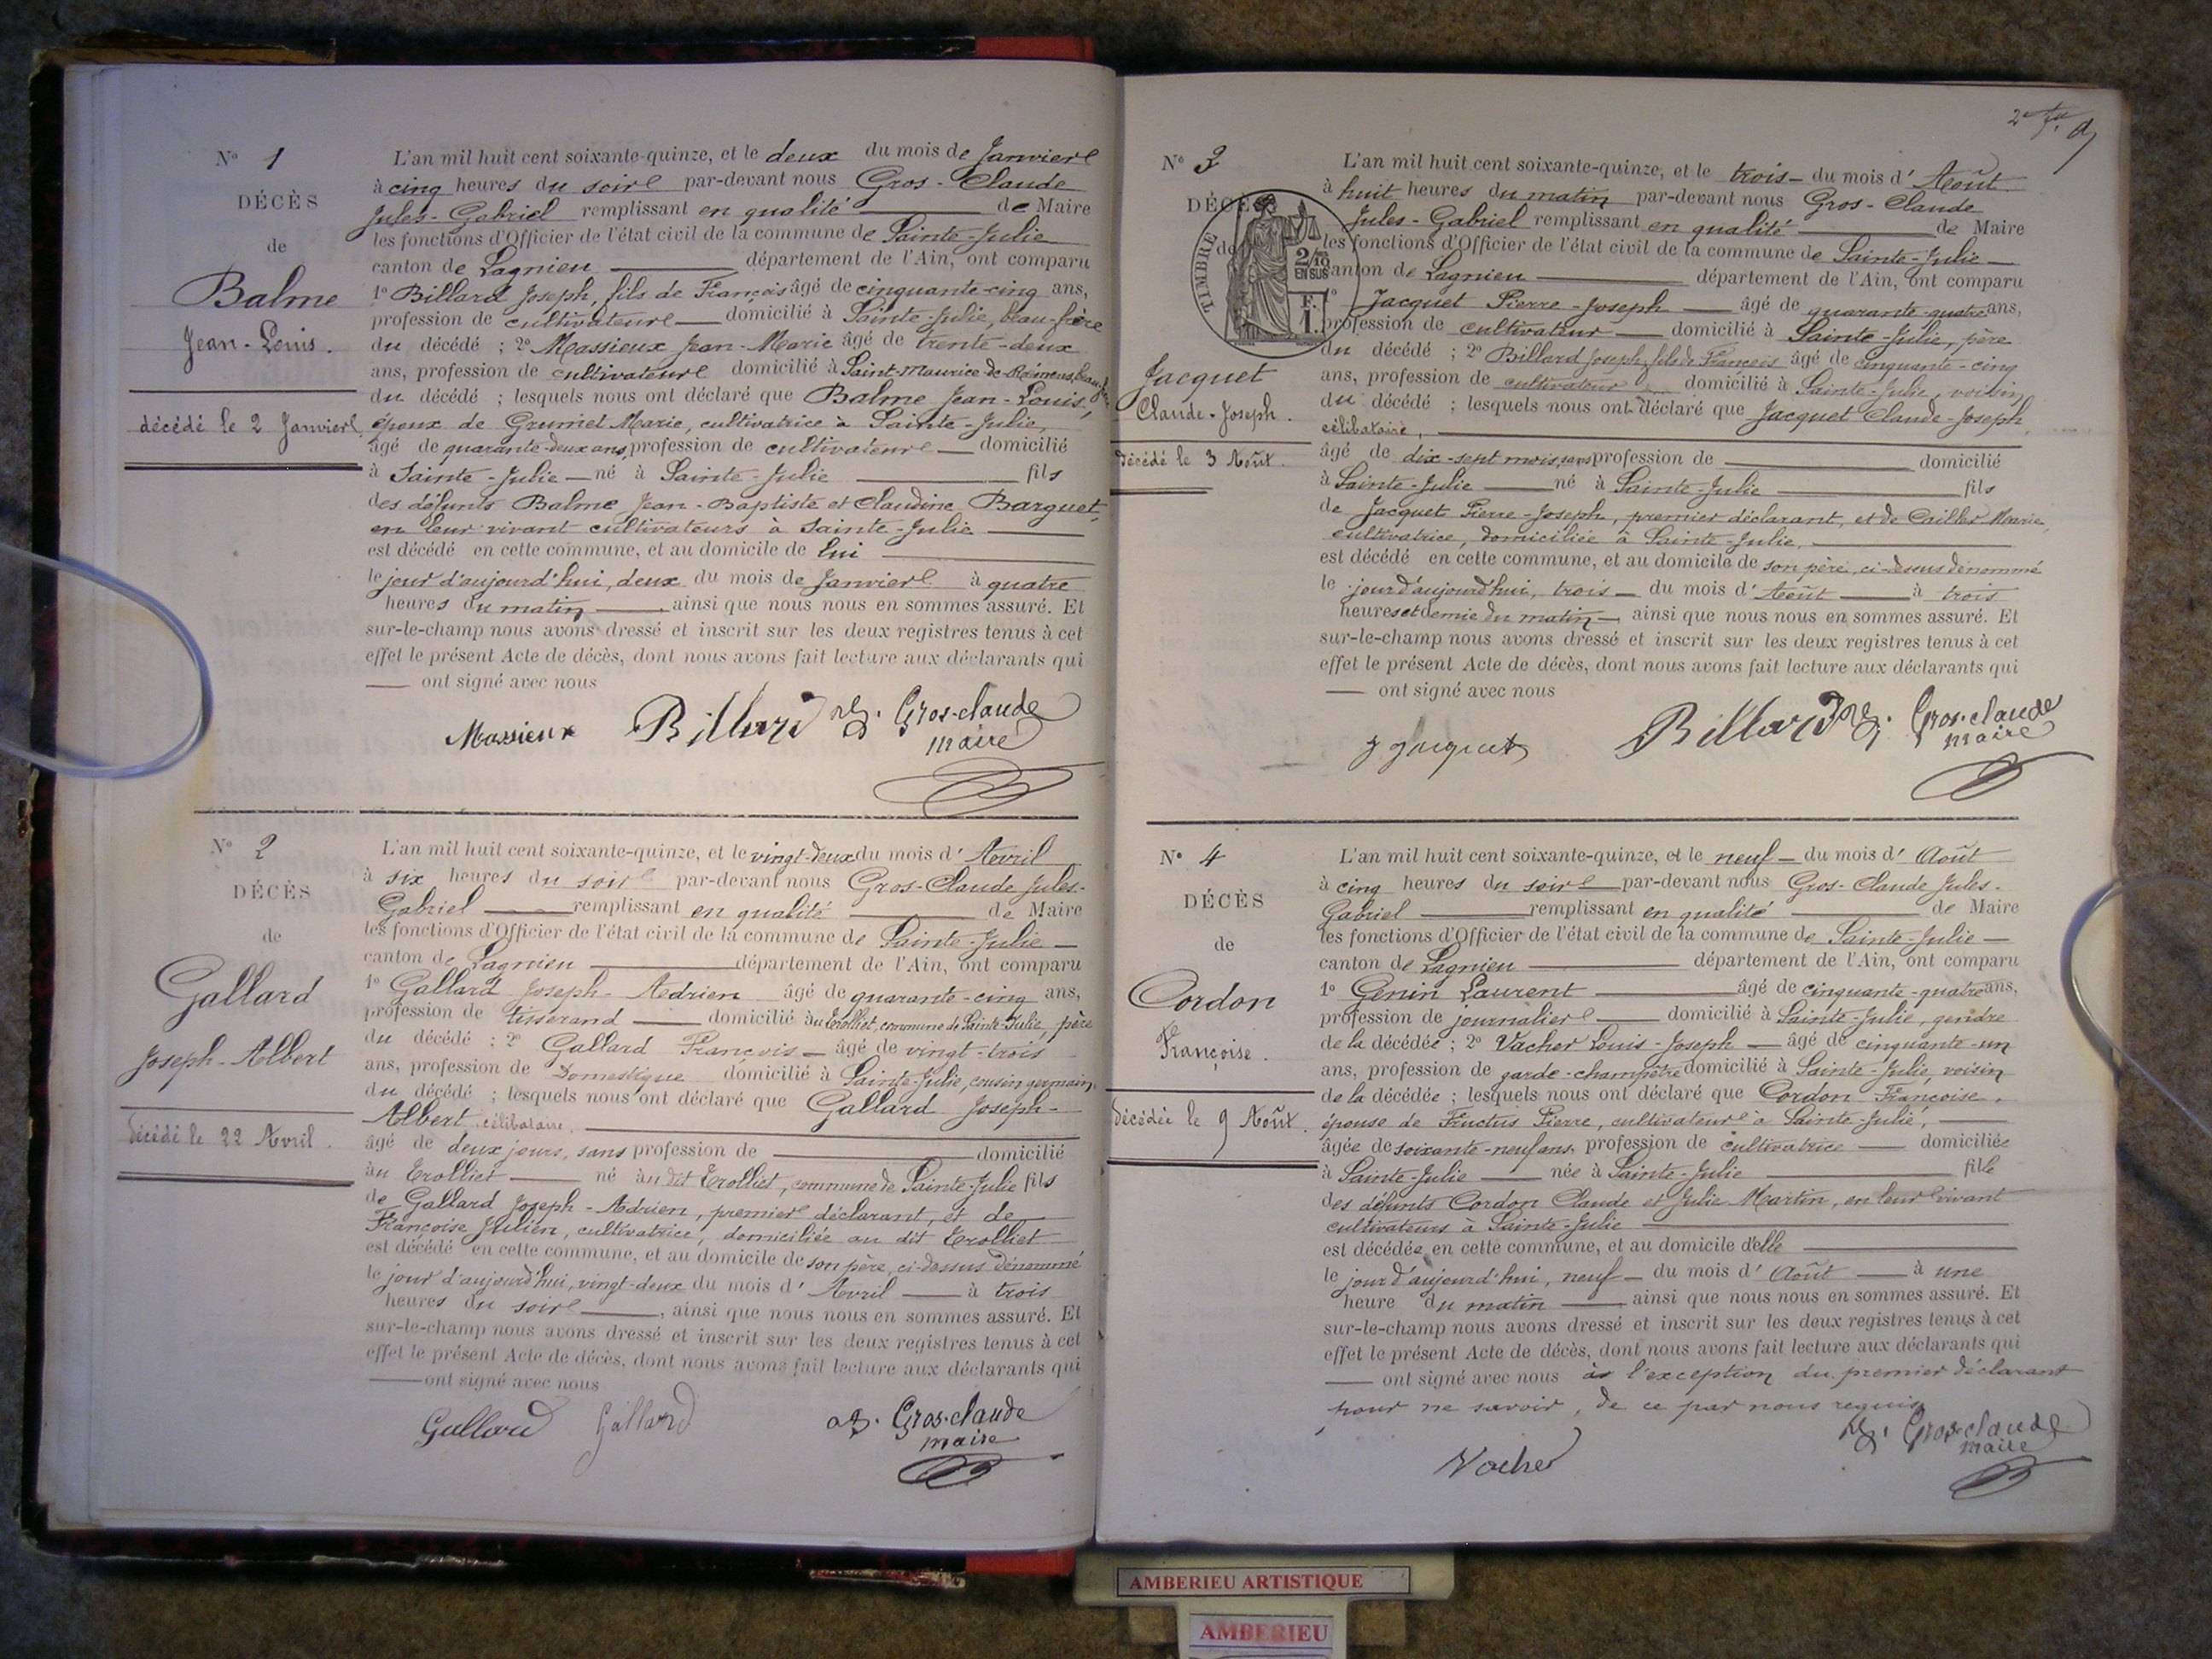 N° 1
DÉCÈS
de
Balme
Jean-Louis.
décédé le 2 Janvier
L'an mil huit cent soixante-quinze, et le deux du mois de Janvier
à cinq heures du soir par-devant nous Gros-Claude
Jules-Gabriel remplissant en qualité de Maire
les fonctions d'Officier de l'état civil de la commune de Sainte-Julie
canton de Lagnieu département de l'Ain, ont comparu
1° Billard Joseph, fils de François âgé de cinquante-cinq ans,
profession de cultivateur domicilié à Sainte-Julie, beau-frère
du décédé ; 2° Massieux Jean-Marie âgé de trente-deux
ans, profession de cultivateur domicilié à Saint-Maurice-de-Rémens,
du décédé ; lesquels nous ont déclaré que Balme Jean-Louis,
époux de Grumet Marie, cultivatrice à Sainte-Julie,
âgé de quarante-deux ans, profession de cultivateur domicilié
à Sainte-Julie né à Sainte-Julie fils
des défunts Balme Jean-Baptiste et Claudine Barquet,
en leur vivant cultivateurs à Sainte-Julie
est décédé en cette commune, et au domicile de lui
le jour d'aujourd'hui, deux du mois de Janvier à quatre
heures du matin, ainsi que nous nous en sommes assuré. Et
sur-le-champ nous avons dressé et inscrit sur les deux registres tenus à cet
effet le présent Acte de décès, dont nous avons fait lecture aux déclarants qui
ont signé avec nous
Massieux Billard Gros-claude
maire
N° 2
DÉCÈS
de
Gallard
Joseph-Albert
décédé le 22 Avril.
L'an mil huit cent soixante-quinze, et le vingt-deux du mois d'Avril
à six heures du soir par-devant nous Gros-Claude Jules-
Gabriel remplissant en qualité de Maire
les fonctions d'Officier de l'état civil de la commune de Sainte-Julie
canton de Lagnieu département de l'Ain, ont comparu
1° Gallard Joseph-Adrien âgé de quarante-cinq ans,
profession de tisserand domicilié au Trolliet, commune de Sainte-Julie, père
du décédé ; 2° Gallard François âgé de vingt-trois
ans, profession de Domestique domicilié à Sainte-Julie, cousin germain
du décédé ; lesquels nous ont déclaré que Gallard Joseph-
Albert, célibataire,
âgé de deux jours, sans profession de domicilié
au Trolliet né au dit Trolliet, commune de Sainte-Julie fils
de Gallard Joseph-Adrien, premier déclarant, et de
Françoise Julien, cultivatrice, domiciliée au dit Trolliet
est décédé en cette commune, et au domicile de son père, ci-dessus dénommé
le jour d'aujourd'hui, vingt-deux du mois d'Avril à trois
heures du soir, ainsi que nous nous en sommes assuré. Et
sur-le-champ nous avons dressé et inscrit sur les deux registres tenus à cet
effet le présent Acte de décès, dont nous avons fait lecture aux déclarants qui
ont signé avec nous
Gallard Gallard Gros-claude
maire
N° 3
DÉCÈS
de
TIMBRE
2/10
EN SUS
F.
1.
Jacquet
Claude-Joseph.
décédé le 3 Août.
L'an mil huit cent soixante-quinze, et le trois du mois d'Août
à huit heures du matin par-devant nous Gros-Claude
Jules-Gabriel remplissant en qualité de Maire
les fonctions d'Officier de l'état civil de la commune de Sainte-Julie
canton de Lagnieu département de l'Ain, ont comparu
1° Jacquet Pierre-Joseph âgé de quarante-quatre ans,
profession de cultivateur domicilié à Sainte-Julie, père
du décédé ; 2° Billard Joseph, fils de François âgé de cinquante-cinq
ans, profession de cultivateur domicilié à Sainte-Julie, voisin
du décédé ; lesquels nous ont déclaré que Jacquet Claude-Joseph
célibataire,
âgé de dix-sept mois, sans profession de domicilié
à Sainte-Julie né à Sainte-Julie fils
de Jacquet Pierre-Joseph, premier déclarant, et de Cailler Marie,
cultivatrice, domiciliée à Sainte-Julie,
est décédé en cette commune, et au domicile de son père, ci-dessus dénommé
le jour d'aujourd'hui, trois du mois d'Août à trois
heures et demie du matin, ainsi que nous nous en sommes assuré. Et
sur-le-champ nous avons dressé et inscrit sur les deux registres tenus à cet
effet le présent Acte de décès, dont nous avons fait lecture aux déclarants qui
ont signé avec nous
Billard Gros-claude
maire
N° 4
DÉCÈS
de
Cordon
Françoise.
décédée le 9 Août.
L'an mil huit cent soixante-quinze, et le neuf du mois d'Août
à cinq heures du soir par-devant nous Gros-Claude Jules-
Gabriel remplissant en qualité de Maire
les fonctions d'Officier de l'état civil de la commune de Sainte-Julie
canton de Lagnieu département de l'Ain, ont comparu
1° Genin Laurent âgé de cinquante-quatre ans,
profession de journalier domicilié à Sainte-Julie, gendre
de la décédée ; 2° Vacher Louis-Joseph âgé de cinquante-un
ans, profession de garde-champêtre domicilié à Sainte-Julie, voisin
de la décédée ; lesquels nous ont déclaré que Cordon Françoise,
épouse de Fructus Pierre, cultivateur à Sainte-Julie,
âgée de soixante-neuf ans, profession de cultivatrice domiciliée
à Sainte-Julie née à Sainte-Julie fille
des défunts Cordon Claude et Julie Martin, en leur vivant
cultivateurs à Sainte-Julie
est décédée en cette commune, et au domicile d'elle
le jour d'aujourd'hui, neuf du mois d'Août à une
heure du matin ainsi que nous nous en sommes assuré. Et
sur-le-champ nous avons dressé et inscrit sur les deux registres tenus à cet
effet le présent Acte de décès, dont nous avons fait lecture aux déclarants qui
ont signé avec nous à l'exception du premier déclarant
pour ne savoir, de ce par nous requis
Vacher Gros-claude
maire
AMBERIEU ARTISTIQUE
AMBERIEU